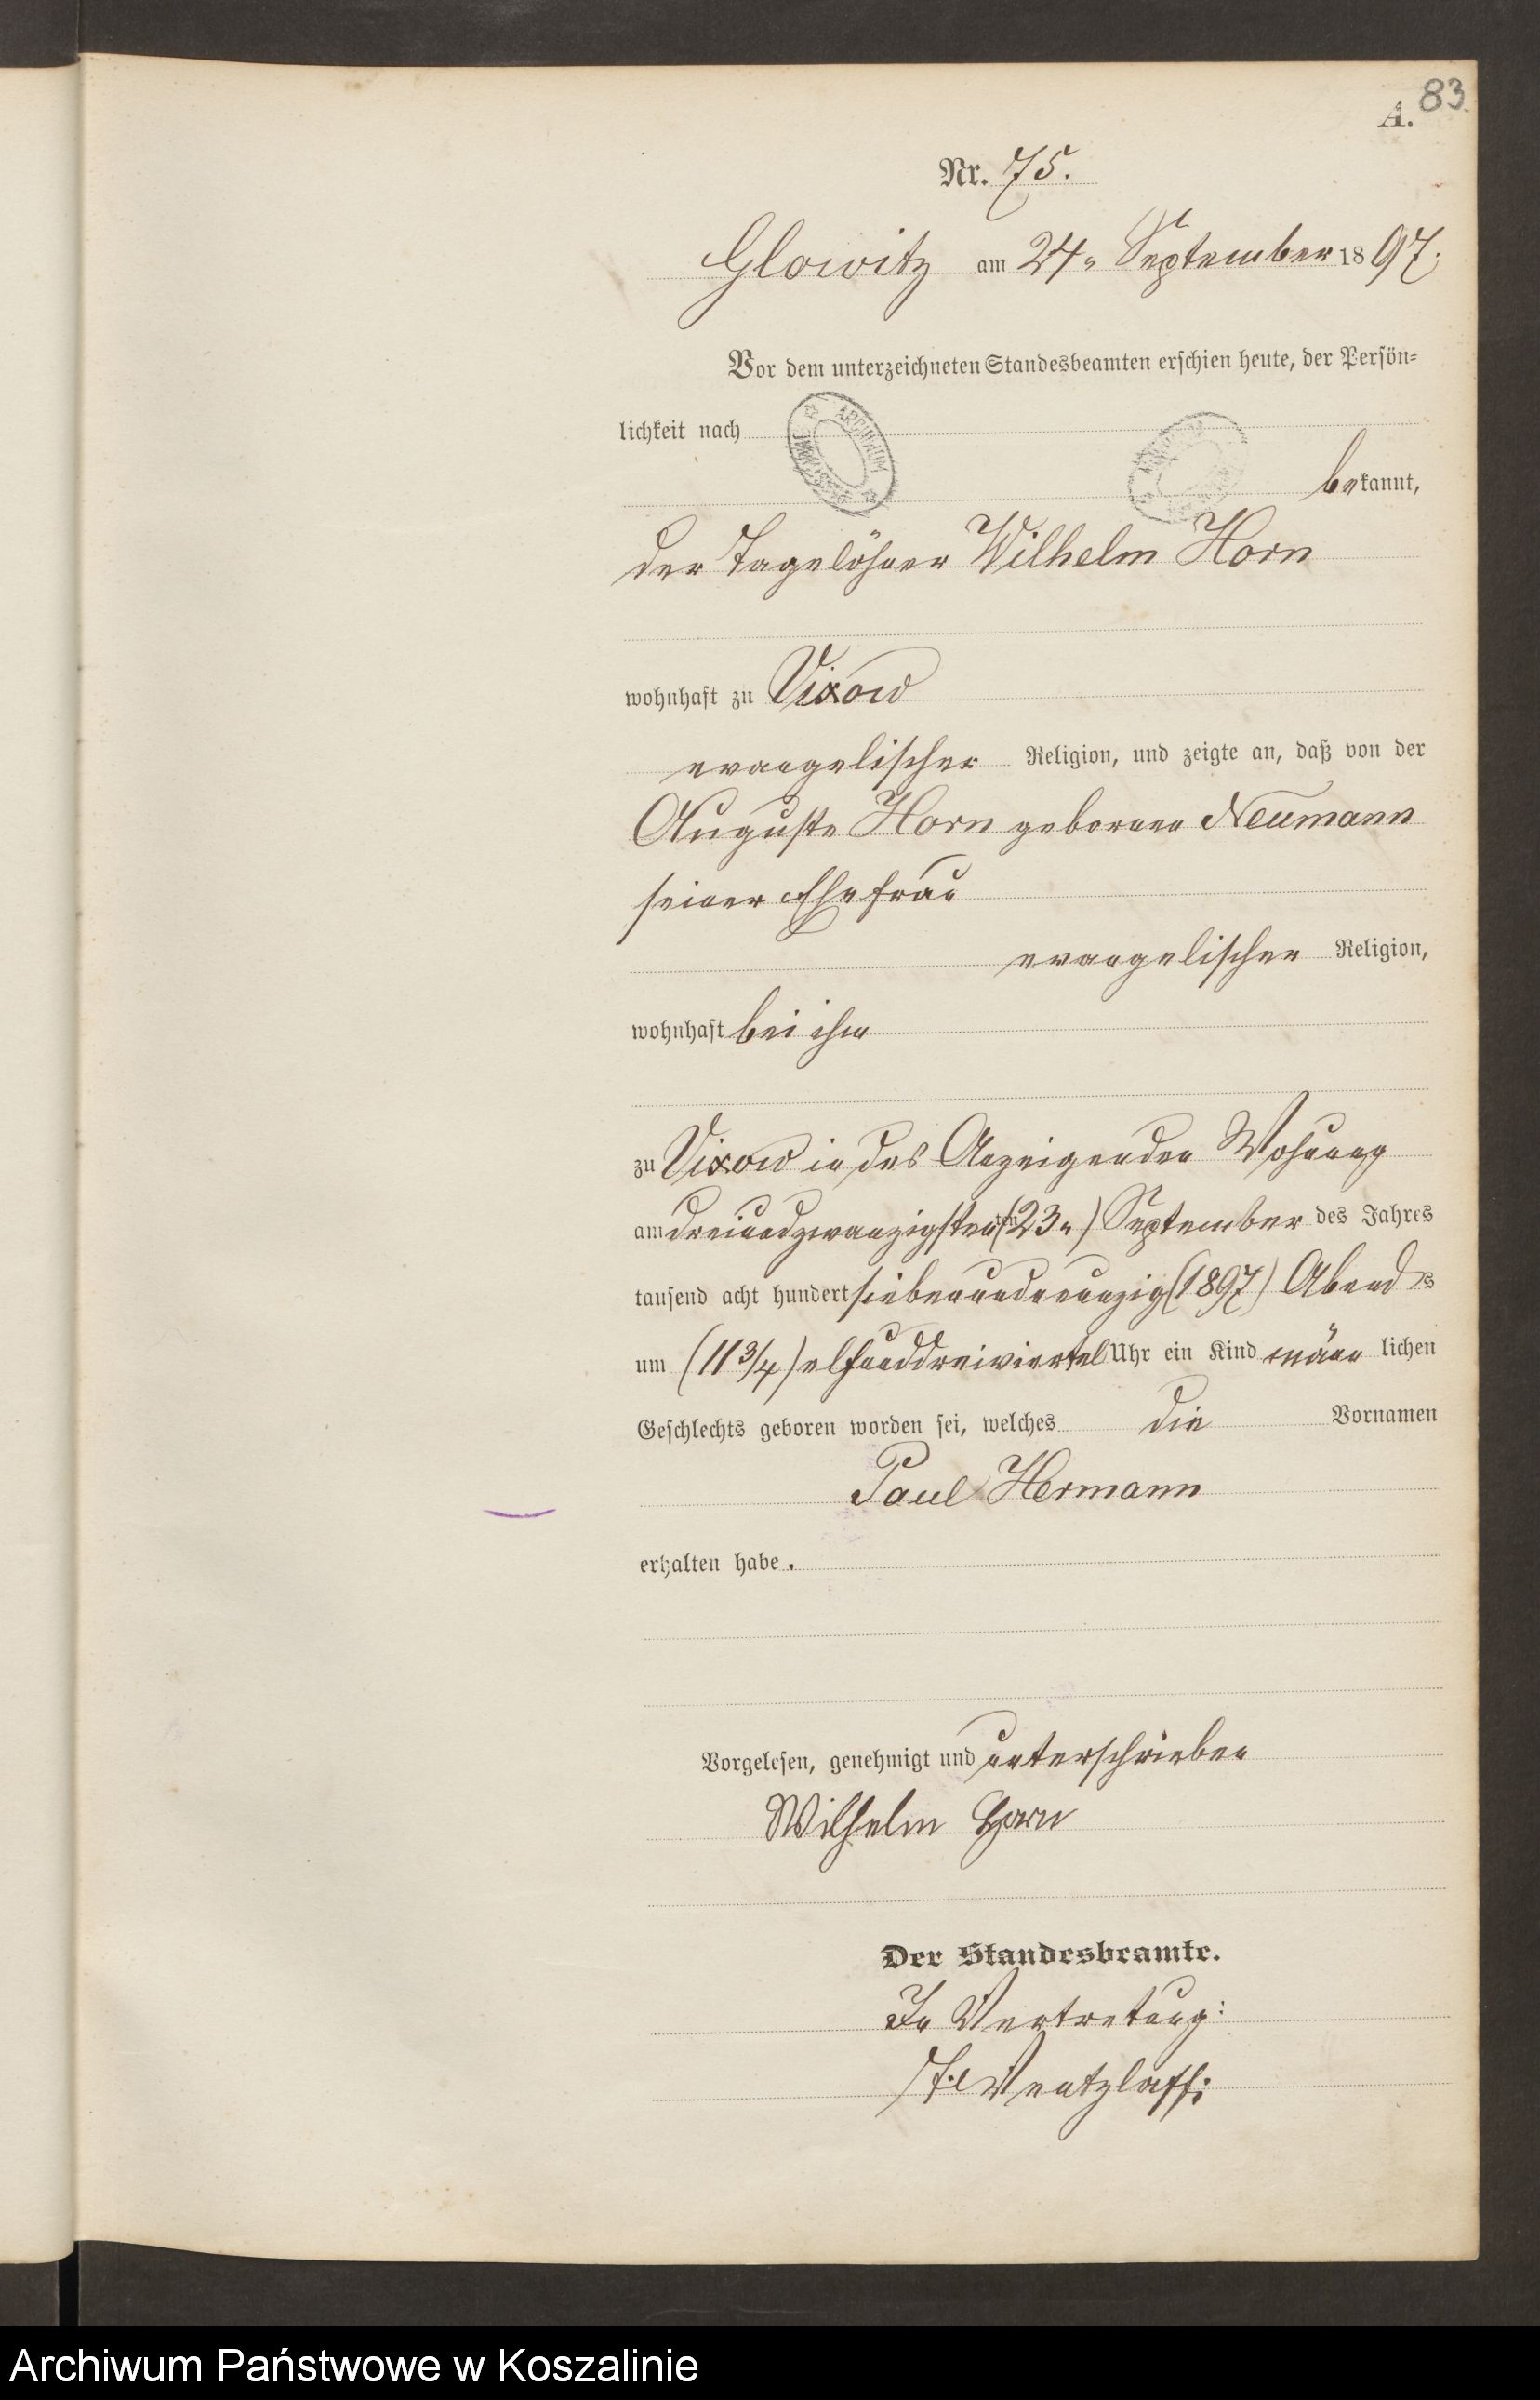 83.
A.
Nr. 75.
Glowitz am 24. September 1897.
Vor dem unterzeichneten Standesbeamten erschien heute, der Persön-
lichkeit nach
ARCHIWUM
bekannt,
der Tagelöhner Wilhelm Horn
wohnhaft zu Vixow
evangelischer Religion, und zeigte an, daß von der
Auguste Horn geborenen Neumann
seiner Ehefrau
evangelischen Religion,
wohnhaft bei ihm
zu Vixow in des Anzeigenden Wohnung
am dreiundzwanzigsten ten (23.) September des Jahres
tausend acht hundert siebenundneunzig (1897) Abends
um (11 3/4) elfunddreiviertel Uhr ein Kind männlichen
Geschlechts geboren worden sei, welches die Vornamen
Paul Hermann
erhalten habe.
Vorgelesen, genehmigt und unterschrieben
Wilhelm Horn
Der Standesbeamte.
In Vertretung:
Wentzlaff.
Archiwum Państwowe w Koszalinie